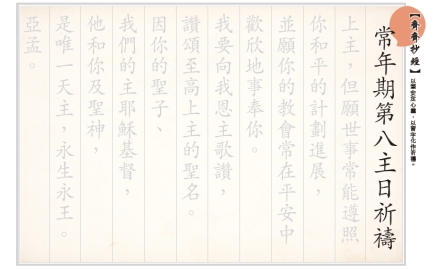 【齊齊抄經】
以筆安定心靈，以留字化作祈禱。
常年期第八主日祈禱
上主，但願世事常能遵照
你和平的計劃進展，
並願你的教會常在平安中
歡欣地事奉你。
我要向我恩主歌讚，
讚頌至高上主的聖名。
因你的聖子、
我們的主耶穌基督，
他和你及聖神，
是唯一天主，永生永王。
亞孟。